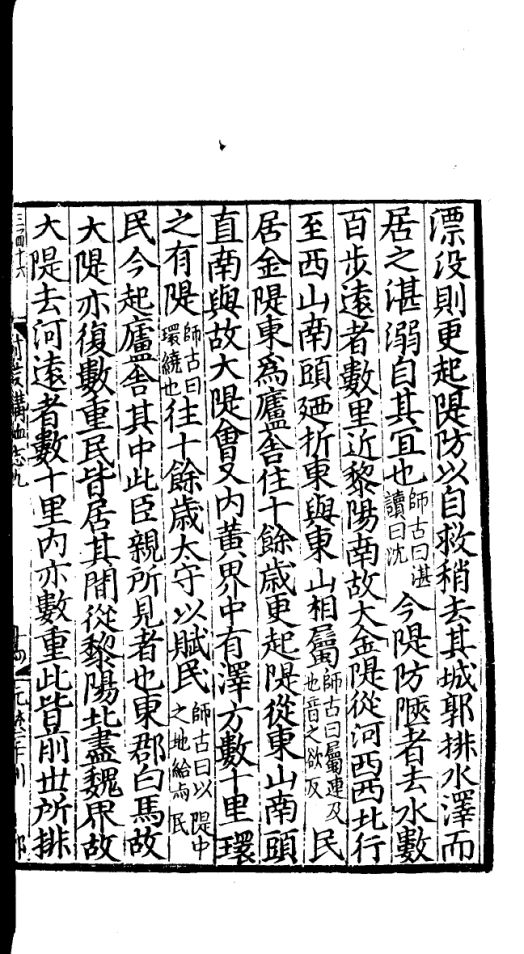 漂没則更起隄防以自救稍去其城郭排水澤而
居之湛溺自其宜也師古曰湛讀曰沈今隄防陿者去水數
百步遠者數里近黎陽南故大金隄從河西西北行
至西山南頭廼折東與東山相屬師古曰屬連及也音之欲反民
居金隄東爲廬舍住十餘歲更起隄從東山南頭
直南與故大隄會又内黄界中有澤方數十里環
之有隄師古曰環繞也往十餘歲太守以賦民師古曰以隄中之地給與民
民今起廬舍其中此臣親所見者也東郡白馬故
大隄亦復數重民皆居其間從黎陽北盡魏界故
大隄去河遠者數十里内亦數重此皆前世所排
三百四十六
前漢溝洫志九
十四